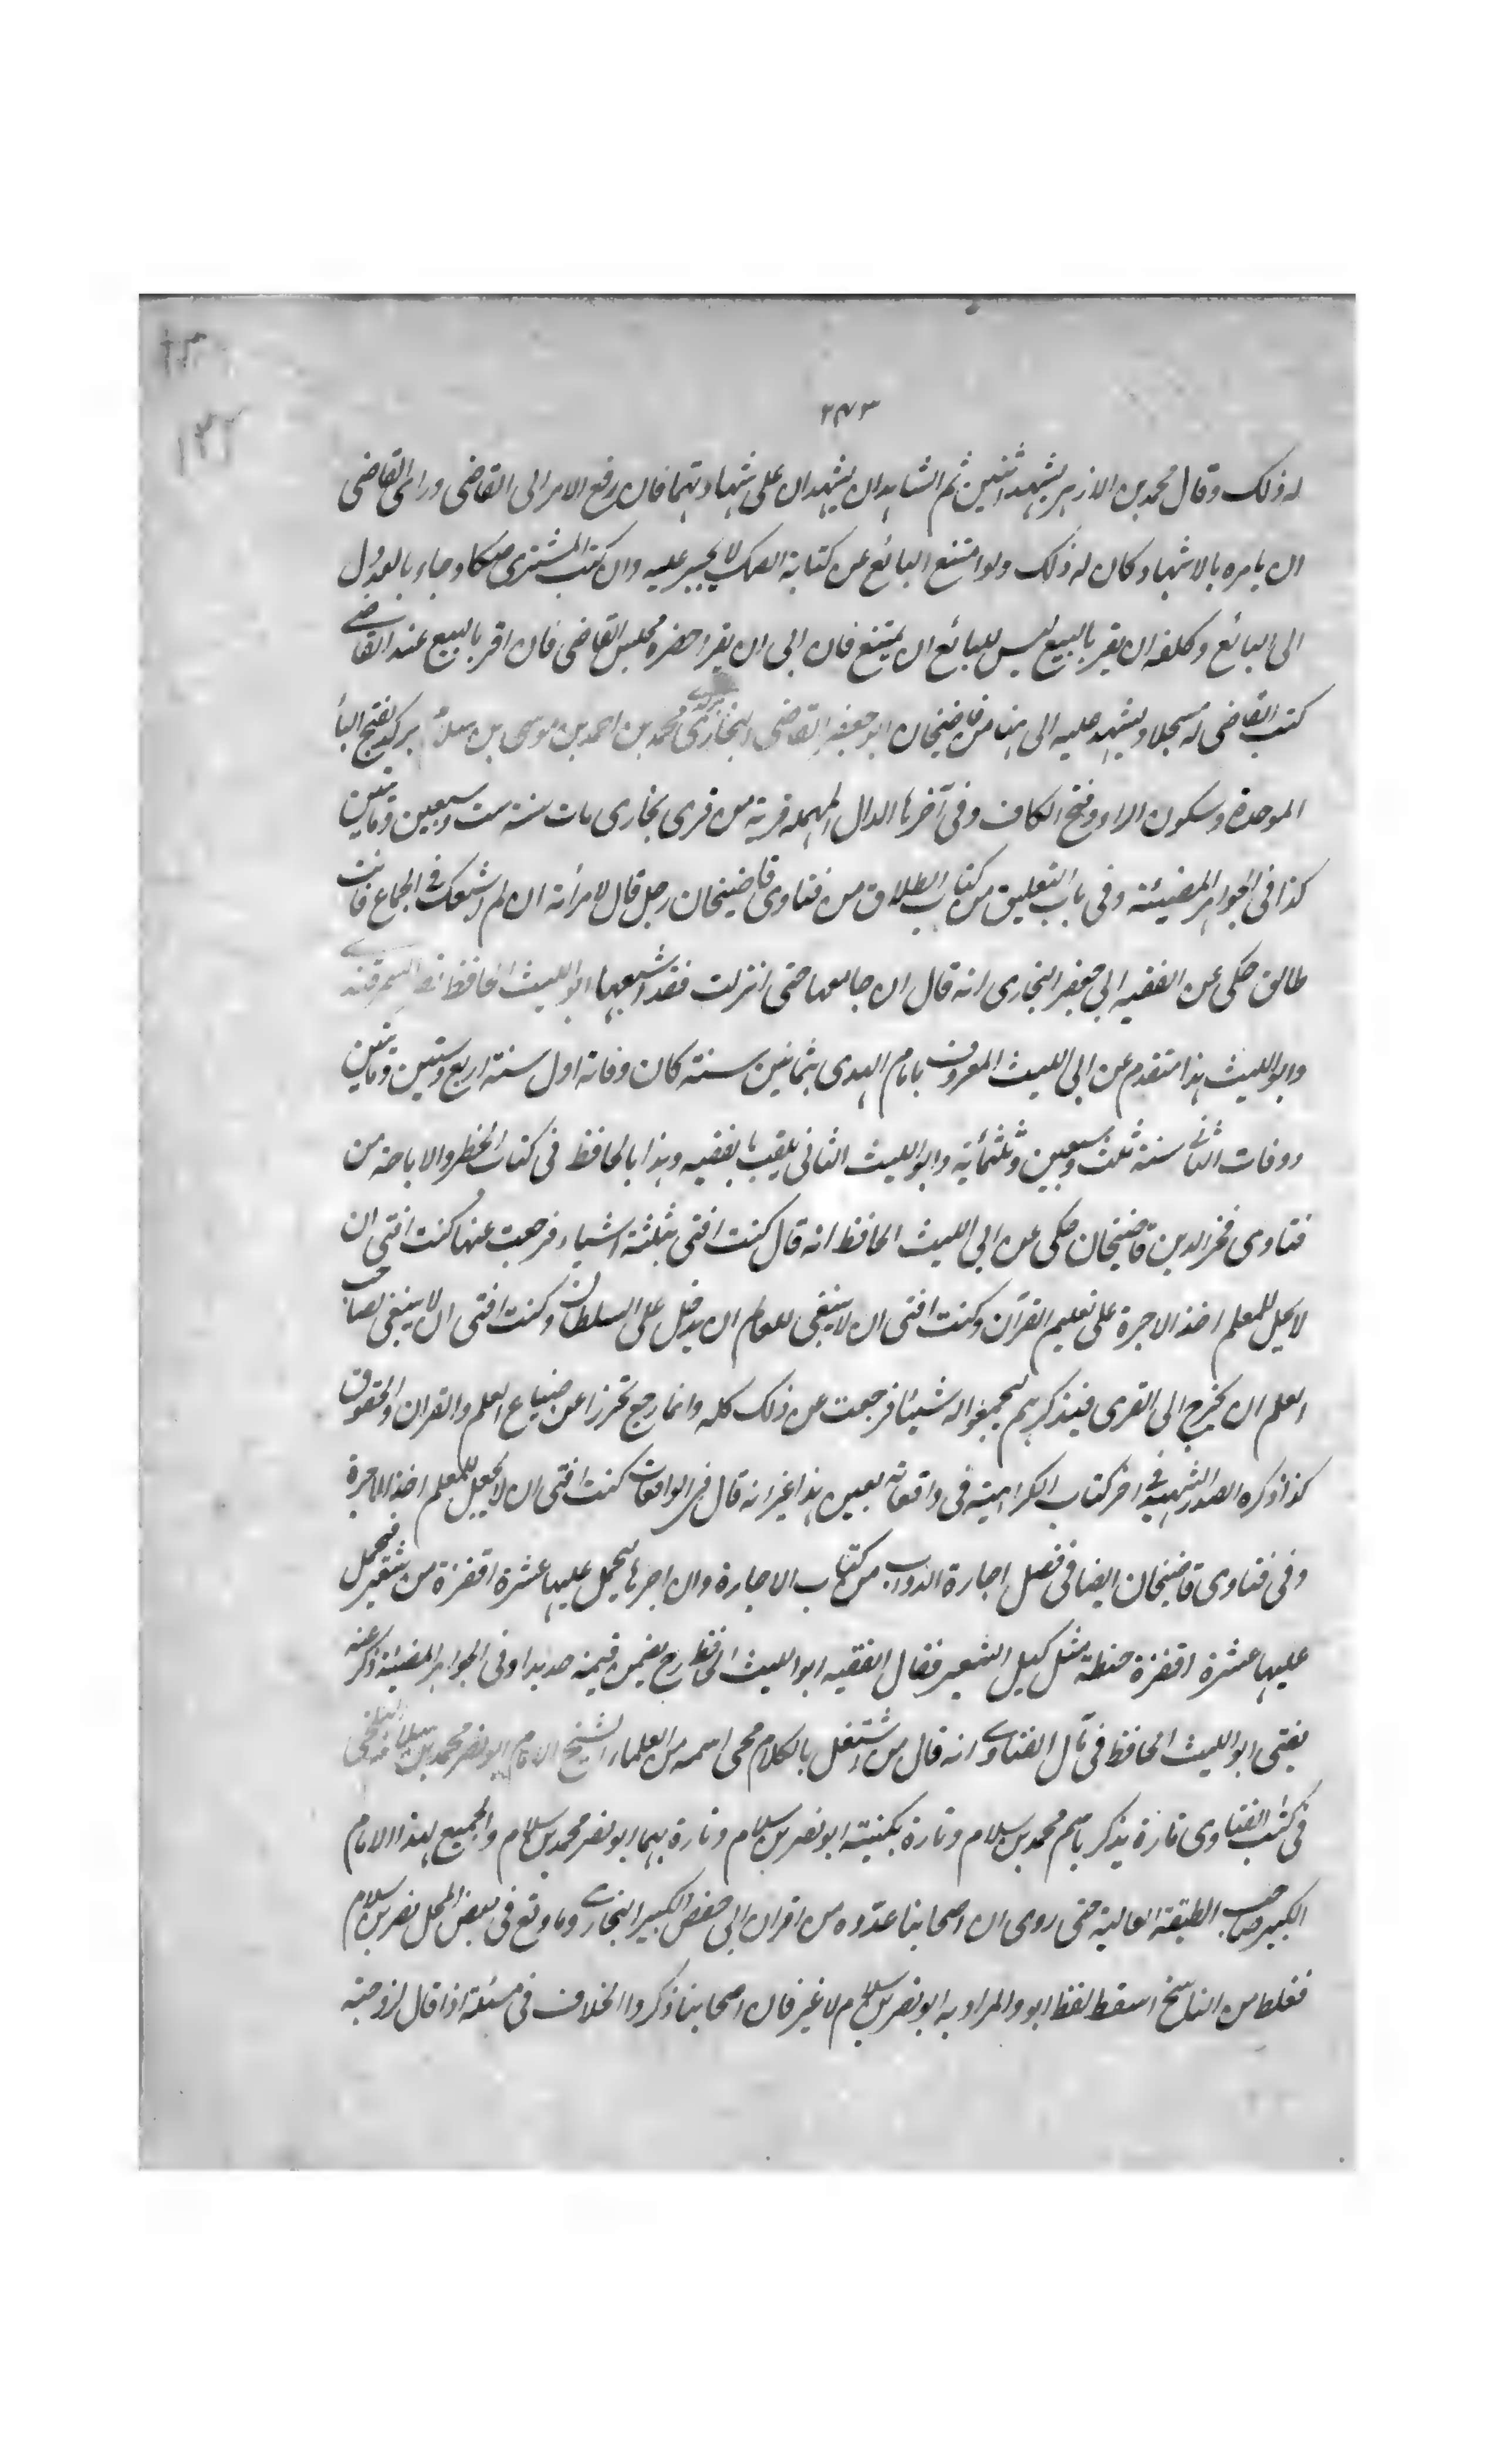 ٢٧٣
١٣٢
له ذلك وقال محمد بن الازهر يشهد اثنين ثم الشاهدان يشهدان على شهادتهما فان رفع الامر الى القاضى وراى القاضى
ان يامره بالاشهاد كان له ذلك ولو امتنع البائع عن كتابة الصك لا يجبر عليه وان كتب المشترى صكا وجاء بالعدول
الى البائع وكلفه ان يقر بالبيع ليس للبائع ان يمتنع فان ابى ان يقر احضره مجلس القاضى فان اقر بالبيع عند القاضى
كتب القاضى له سجلا ويشهد عليه الى هنا من قاضيخان ابو جعفر القاضى البخارى محمد بن احمد بن موسى بن سلام بركد بفتح الباء
الموحدة وسكون الراء وفتح الكاف وفى آخرها الدال المهملة قرية من قرى بخارى مات سنة ست وسبعين ومايتين
كذا فى الجواهر المضيئة وفى باب التعليق من كتاب الطلاق من فتاوى قاضيخان رجل قال لامرأته ان لم اشبعك فى الجماع فانت
طالق حكى عن الفقيه ابى جعفر البخارى انه قال ان جامعها حتى انزلت فقد اشبعها ابو الليث الحافظ نصر السمرقندى
وابو الليث هذا متقدم عن ابى الليث المعروف بامام الهدى بثمانين سنة كان وفاة اول سنة اربع وستين ومايتين
ووفات الثانى سنة ثلث وسبعين وثلثمائة وابو الليث الثانى يلقب بالفقيه وهذا بالحافظ فى كتاب الحظر والاباحة من
فتاوى فخر الدين قاضيخان حكى عن ابى الليث الحافظ انه قال كنت افتى بثلثة اشياء فرجعت عنها كنت افتى ان
لا يحل للمعلم اخذ الاجرة على تعليم القرآن وكنت افتى ان لا ينبغى للعالم ان يدخل على السلطان وكنت افتى ان لا ينبغى لصاحب
العلم ان يخرج الى القرى فيذكرهم ليجمعوا له شيئا فرجعت عن ذلك كله وانما رجع تحرزا عن ضياع العلم والقران والحقوق
كذا ذكره الصدر الشهيد فى اخر كتاب الكراهية فى واقعاته بعين هذا غير انه قال فى الواقعات كنت افتى ان لا يحل للمعلم اخذ الاجرة
وفى فتاوى قاضيخان ايضا فى فصل اجارة الدواب من كتاب الاجارة وان اجرها ليحمل عليها عشرة اقفزة من شعير فحمل
عليها عشرة اقفزة حنطة مثل كيل الشعير فقال الفقيه ابو الليث الحافظ رح يضمن قيمته حديدا وفى الجواهر المضيئة ذكر عنه
يفتى ابو الليث الحافظ فى مآل الفتاوى انه قال من اشتغل بالكلام محى اسمه من العلماء الشيخ الامام ابو نصر محمد بن سلام البلخى
فى كتب الفتاوى تارة يذكر باسم محمد بن سلام وتارة بكنيته ابو نصر بن سلام وتارة بهما ابو نصر محمد بن سلام والجميع لهذا الامام
الكبير صاحب الطبقة العالية حتى روى ان اصحابنا عدّوه من اقران ابى حفص الكبير البخارى وما وقع فى بعض المحل نصر بن سلام
فغلط من الناسخ اسقط لفظ ابو والمراد به ابو نصر بن سلام لا غير فان اصحابنا ذكروا الخلاف فى مسئلة اذا قال لزوجته